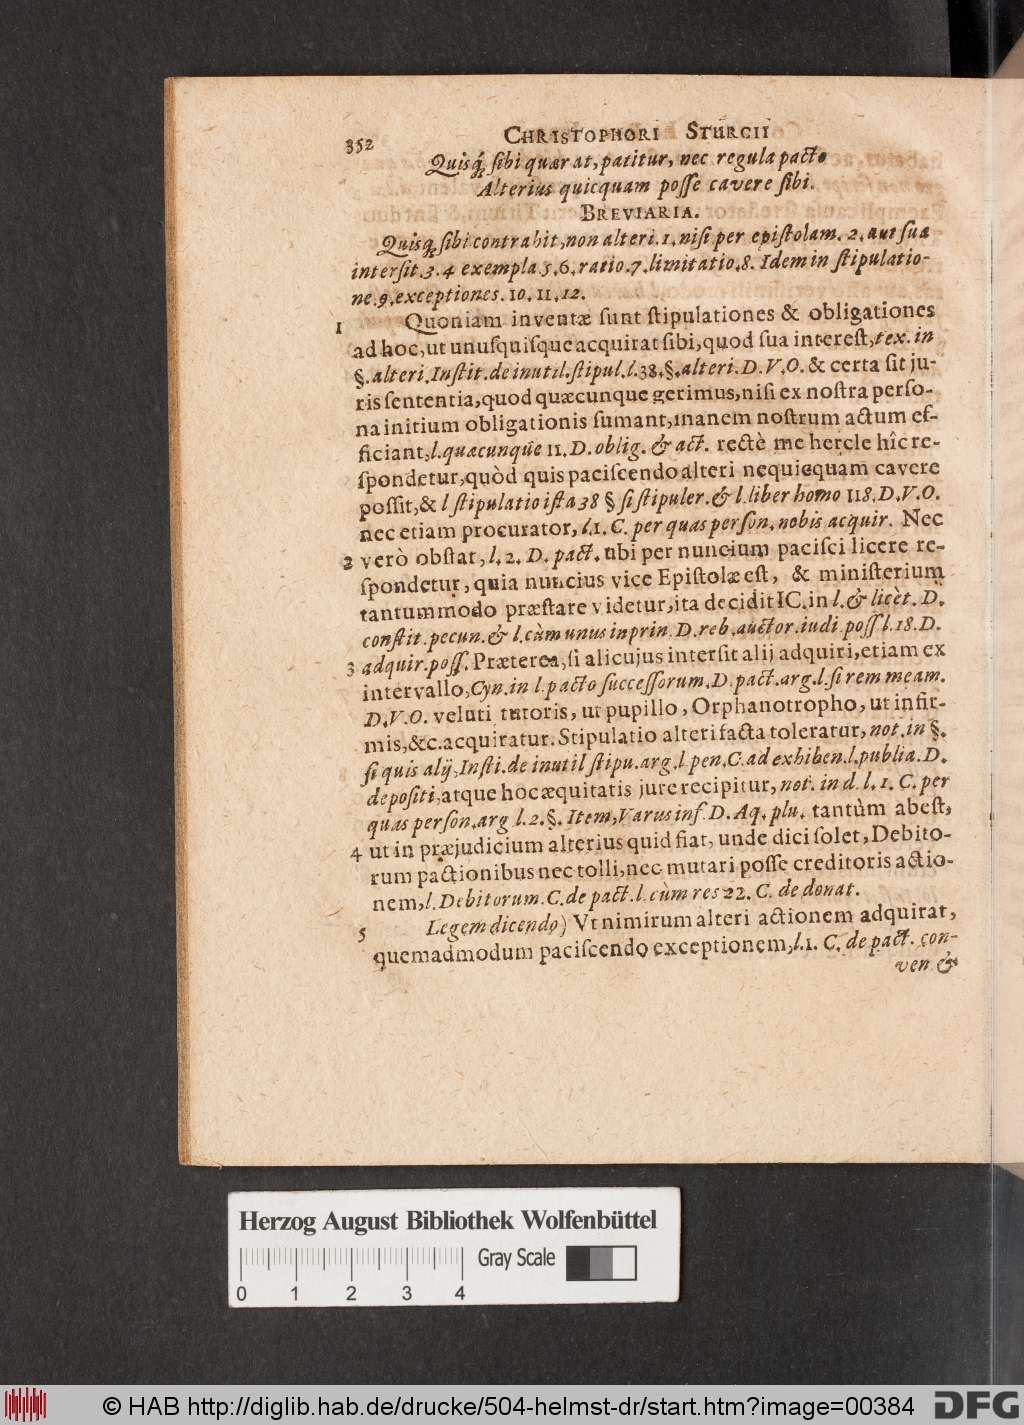 352 CHRISTOPHORI STURCII
Quisq́; sibi quærat, patitur, nec regula pacto
Alterius quicquam posse cavere sibi.
BREVIARIA.
Quisq; sibi contrahit, non alteri. 1. nisi per epistolam. 2. aut sua
intersit. 3. 4 exempla 5. 6. ratio. 7. limitatio. 8. Idem in stipulatio-
ne. 9. exceptiones. 10. 11. 12.
1 Quoniam inventæ sunt stipulationes & obligationes
ad hoc, ut unusquisque acquirat sibi, quod sua interest, tex. in
§. alteri. Instit. de inutil. stipul. l. 38. §. alteri. D. V. O. & certa sit ju-
ris sententia, quod quæcunque gerimus, nisi ex nostra perso-
na initium obligationis sumant, inanem nostrum actum ef-
ficiant, l. quæcunqúe 11. D. oblig. & act. rectè me hercle hîc re-
spondetur, quòd quis paciscendo alteri nequicquam cavere
possit, & l stipulatio ista 38 § si stipuler. & l. liber homo 118. D. V. O.
nec etiam procurator, l. 1. C. per quas person. nobis acquir. Nec
2 verò obstat, l. 2. D. pact. ubi per nuncium pacisci licere re-
spondetur, quia nuncius vice Epistolæ est, & ministerium
tantummodo præstare videtur, ita decidit IC. in l. & licèt. D.
constit. pecun. & l. cùm unus in prin. D. reb. auctor. iudi poss l. 18. D.
3 adquir. poss. Præterea, si alicujus intersit alij adquiri, etiam ex
intervallo, Cyn. in l. pacto successorum. D. pact. arg. l. si rem meam.
D. V. O. veluti tutoris, ut pupillo, Orphanotropho, ut infir-
mis, &c. acquiratur. Stipulatio alteri facta toleratur, not. in §.
si quis alij, Insti. de inutil stipu. arg. l pen. C. ad exhiben. l. publia. D.
depositi, atque hoc æquitatis jure recipitur, not. in d. l. 1. C. per
quas person. arg l. 2. §. Item, Varus inf. D. Aq. plu. tantùm abest,
4 ut in præjudicium alterius quid fiat, unde dici solet, Debito-
rum pactionibus nec tolli, nec mutari posse creditoris actio-
nem, l. Debitorum. C. de pact. l. cùm res 22. C. de donat.
5 Legem dicendo) Vt nimirum alteri actionem adquirat,
quemadmodum paciscendo exceptionem, l. 1. C. de pact. con-
ven &
Herzog August Bibliothek Wolfenbüttel
Gray Scale
0 1 2 3 4
© HAB http://diglib.hab.de/drucke/504-helmst-dr/start.htm?image=00384
DFG